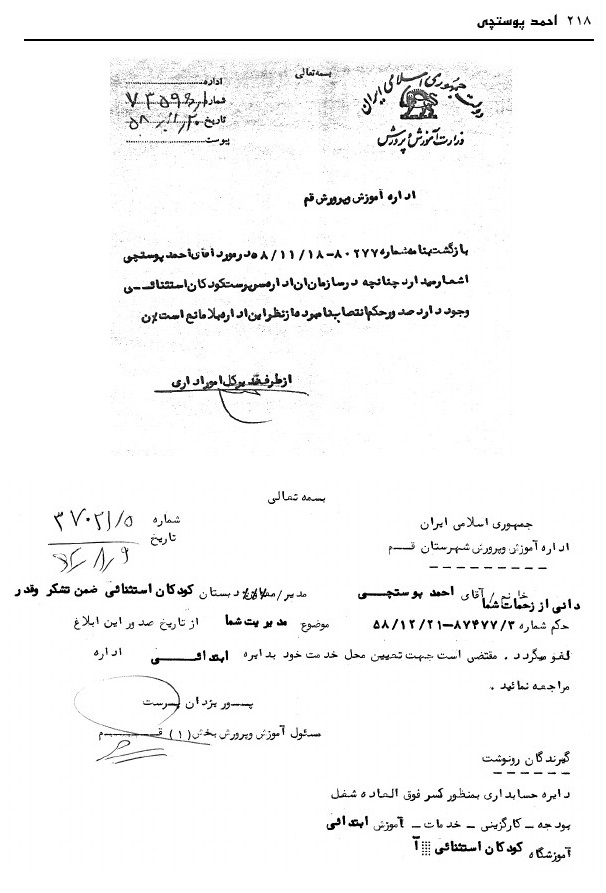 ۲۱۸ احمد پوستچی
بسمه تعالی
دولت جمهوری اسلامی ایران
وزارت آموزش و پرورش
اداره
شماره
تاریخ
پیوست
اداره آموزش وپرورش قم
بازگشت بنامه شماره ۸۰۲۷۷-۵۸/۱۱/۱۸ درمورد آقای احمد پوستچی
اشعارمیدارد چنانچه درسازمان ان اداره پس پرست کودکان استثنائی
وجود دارد صدور حکم انتصاب نامبرده از نظر این اداره بلامانع است
از طرف مدیرکل امور اداری
بسمه تعالی
جمهوری اسلامی ایران
اداره آموزش وپرورش شهرستان قم
شماره ۳۷۰۲۱/۵
تاریخ
خانم/آقای احمد پوستچی مدیر/ دبستان کودکان استثنائی ضمن تشکر وقدر
دانی از زحمات شما
حکم شماره ۸۷۴۷۷/۳-۵۸/۱۲/۲۱ موضوع مدیریت شما از تاریخ صدور این ابلاغ
لغو میگردد . مقتضی است جهت تعیین محل خدمت خود بدایره ابتدائی اداره
مراجعه نمائید .
پرور یزدان پرست
مسئول آموزش وپرورش بخش (۱) قم
گیرندگان رونوشت
دایره حسابداری بمنظور کسر فوق العاده شغل
بودجه - کارگزینی - خدمات - آموزش ابتدائی
آموزشگاه کودکان استثنائی